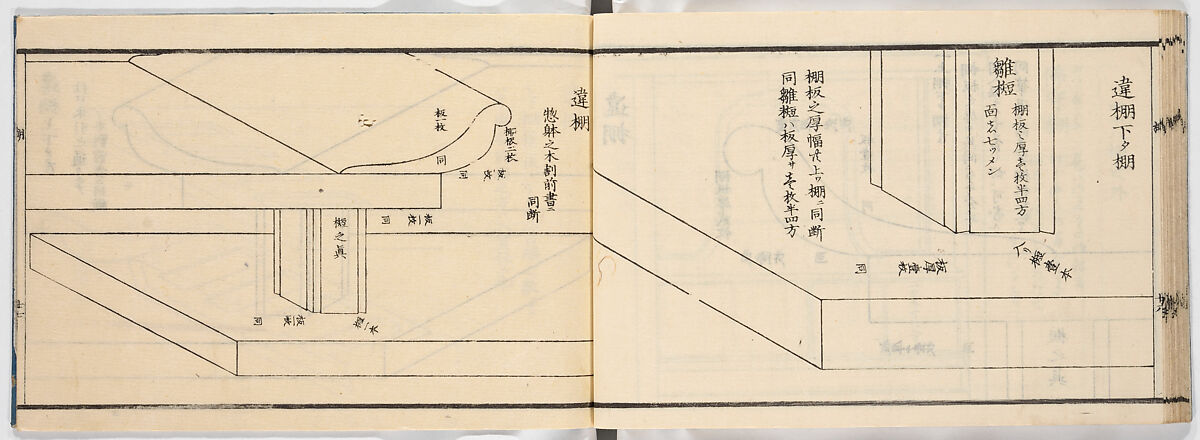 違棚下タ棚
雛短
棚板之厚壱枚半四方
面ハ七ツメン
棚板之厚幅共上ワ棚ニ同断
同雛短ハ板厚サ壱枚半四方
板厚壹枚
同
違棚
惣躰之木割前書ニ
同断
板一枚
同
棚板二枚
板一枚
同
板一枚
同
短之真
板一枚
同